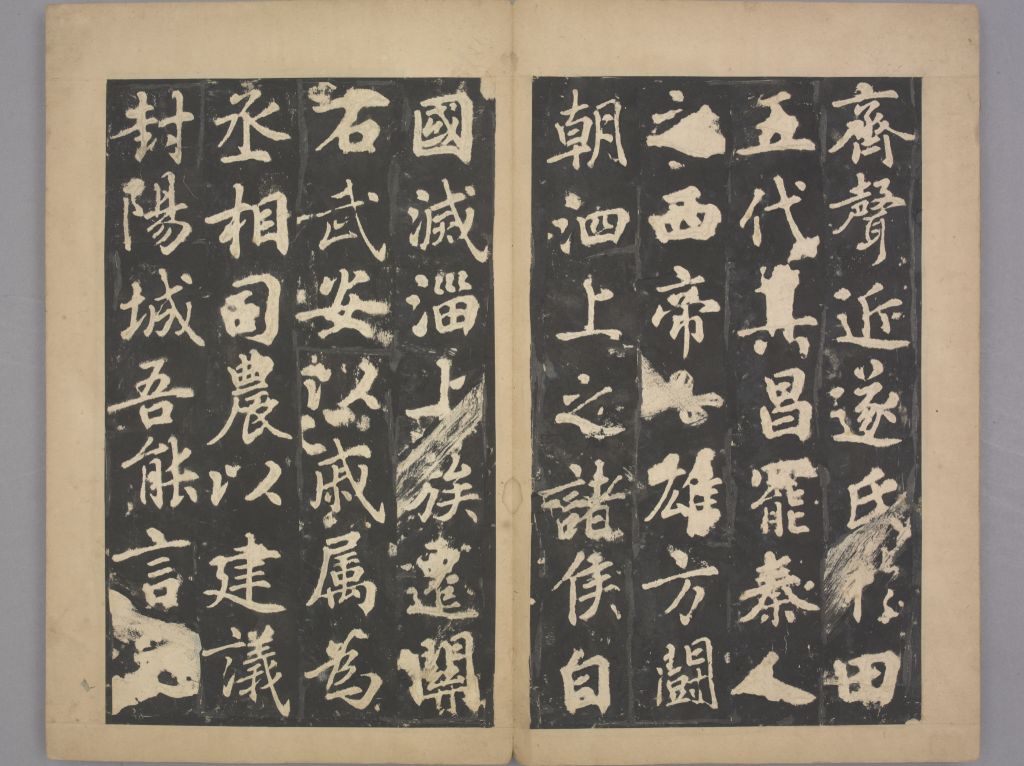 齊聲近遂氏於田
五代其昌罷秦人
之西帝七雄方鬪
朝泗上之諸侯自
國滅淄上族遷關
右武安以戚属為
丞相司農以建議
封陽城吾能言